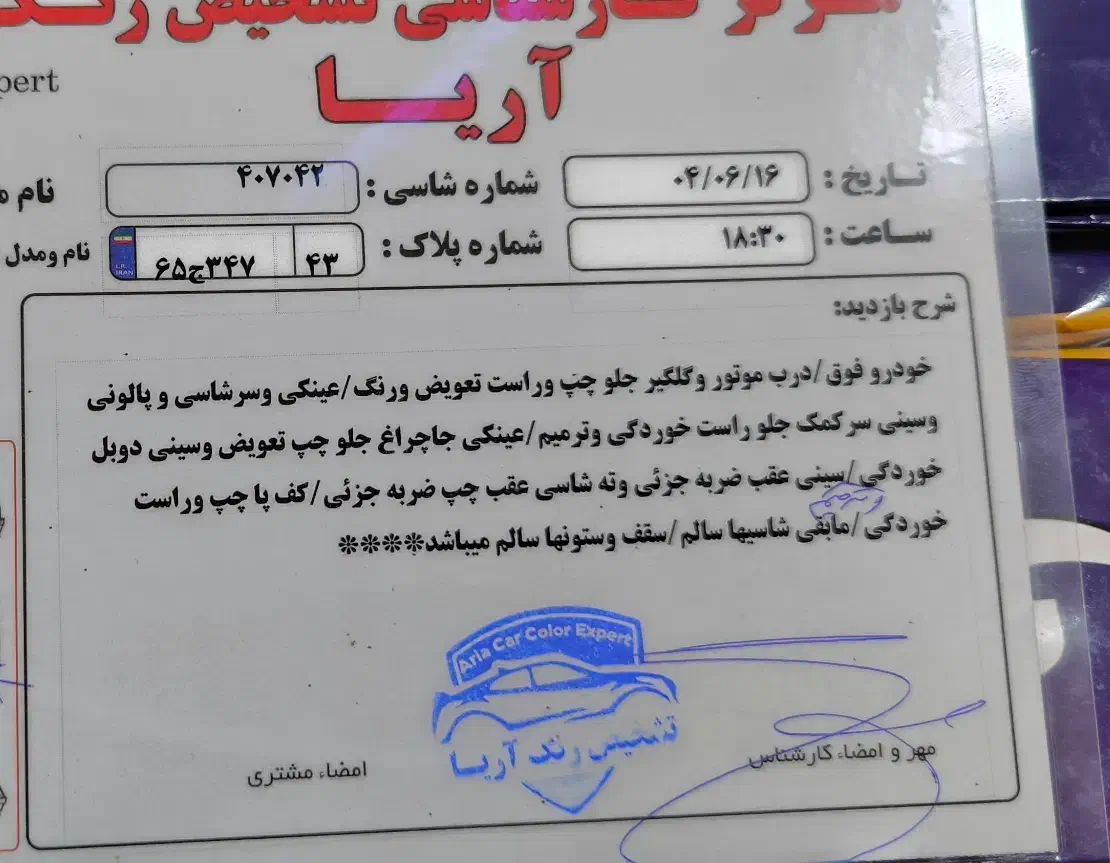 مرکز کارشناسی تشخیص رنگ
آریا
pert
تاریخ : ۰۴/۰۶/۱۶
شماره شاسی : ۴۰۷۰۴۲
نام
ساعت : ۱۸:۳۰
شماره پلاک : ۴۳ ۳۴۷ج۶۵
I.R. IRAN
نام ومدل
شرح بازدید:
خودرو فوق/درب موتور وگلگیر جلو چپ وراست تعویض ورنگ/عینکی وسرشاسی و پالونی
وسینی سرکمک جلو راست خوردگی وترمیم/عینکی جاچراغ جلو چپ تعویض وسینی دوبل
خوردگی/سینی عقب ضربه جزئی وته شاسی عقب چپ ضربه جزئی/کف پا چپ وراست
وترمیم
خوردگی/مابقی شاسیها سالم/سقف وستونها سالم میباشد****
Aria Car Color Expert
تشخیص رنگ آریا
مهر و امضاء کارشناس
امضاء مشتری